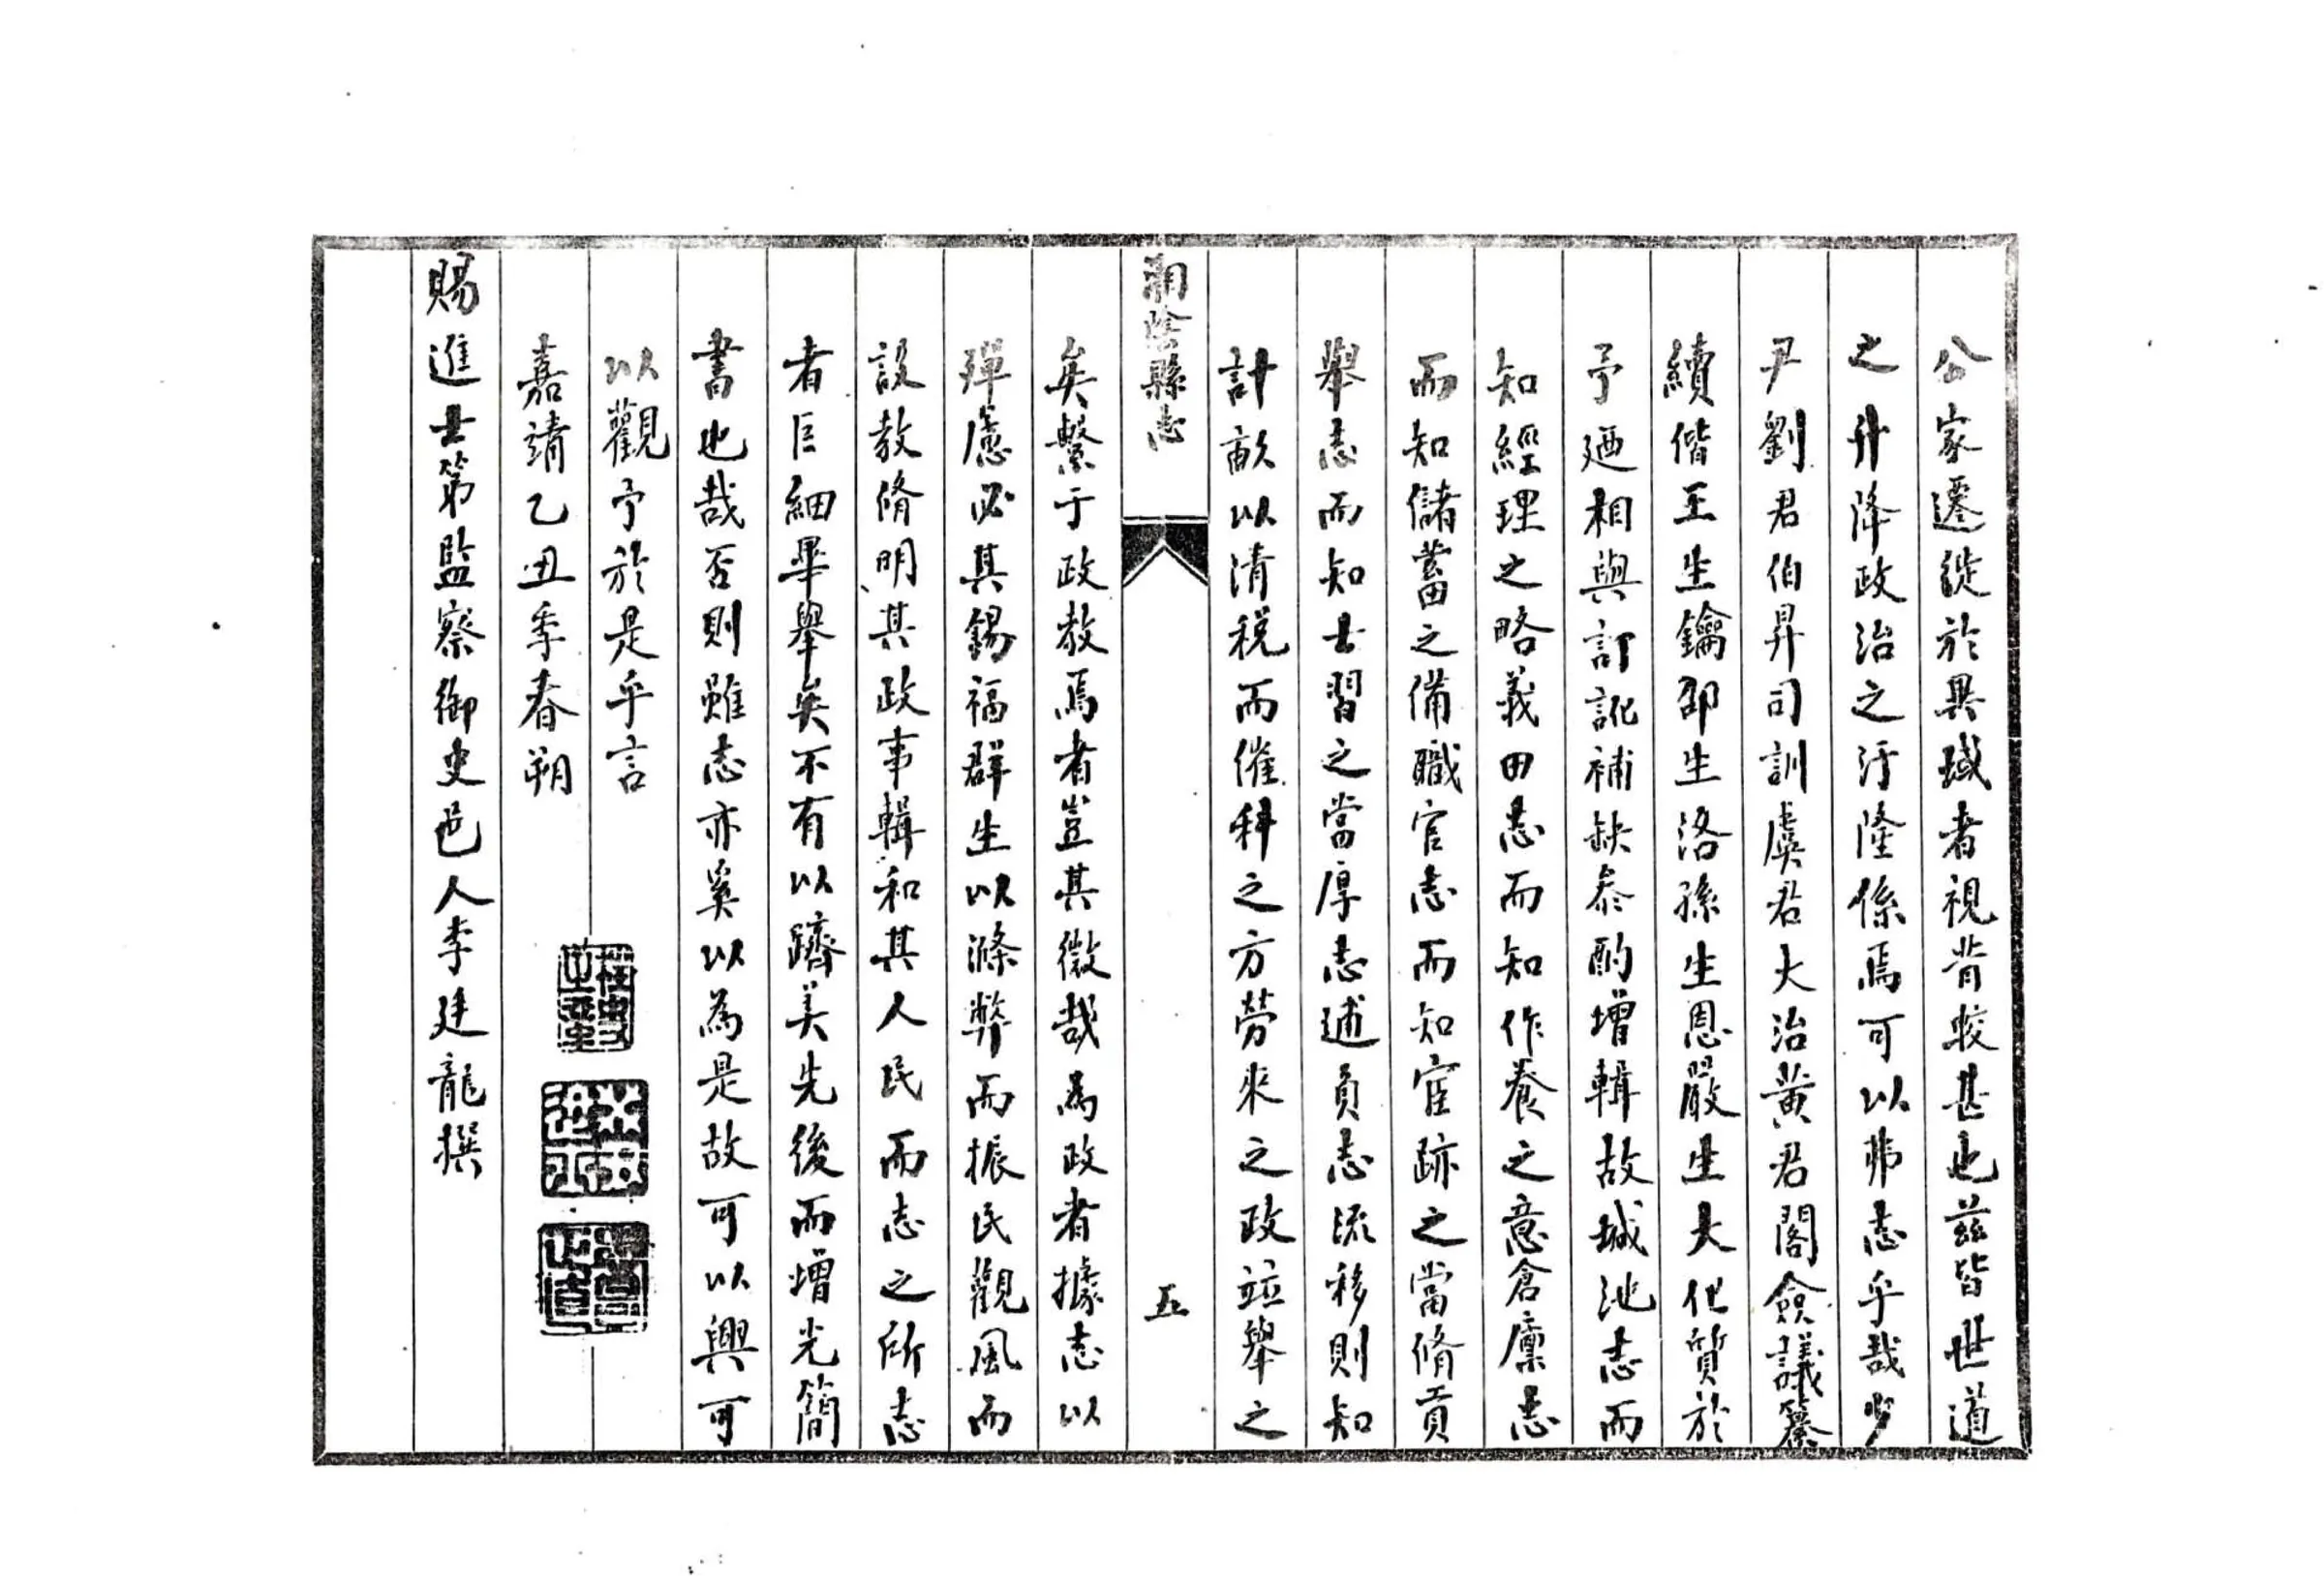 公家遷徙於異域者視昔較甚也茲皆世道
之升降政治之汙隆係焉可以弗志乎哉少
尹劉君伯昇司訓虞君大治黄君閣僉議纂
續偕王生鑰邵生洛孫生恩嚴生大化質於
予廼相與訂訛補缺叅酌增輯故城池志而
知經理之略義田志而知作養之意倉廩志
而知儲蓄之備職官志而知宦跡之當脩貢
舉志而知士習之當厚志逋負志流移則知
計畝以清税而催科之方勞來之政並舉之
湘陰縣志
五
矣繫于政教焉者豈其微哉為政者據志以
殫慮必其錫福群生以滌弊而振民觀風而
設教脩明其政事輯和其人民而志之所志
者巨細畢舉矣不有以躋美先後而增光簡
書也哉否則雖志亦奚以為是故可以興可
以觀予於是乎言
嘉靖乙丑季春朔
賜進士第監察御史邑人李廷龍撰